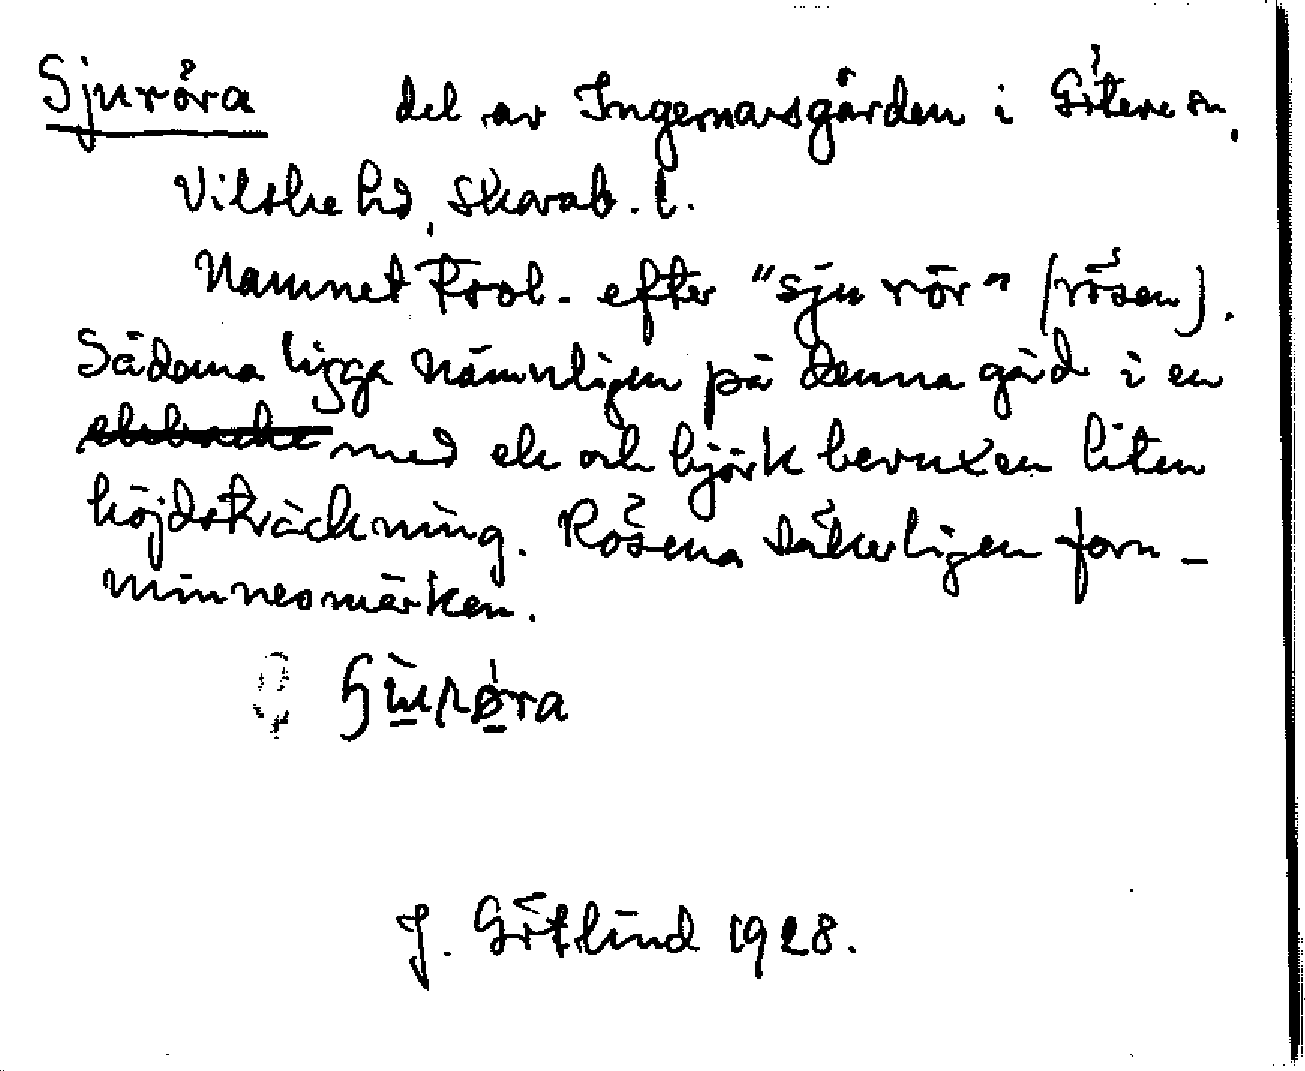 Sjuröra del av Ingemarsgården i Göteve sn,
Vilske hd, Skarab. l.
Namnet trol. efter "sju rör" (rösen).
Sådana ligga nämnligen på denna gård i en
med ek och björk bevuxen liten
höjdsträckning. Rösena säkerligen forn-
minnesmärken.
J. Götlind 1928.